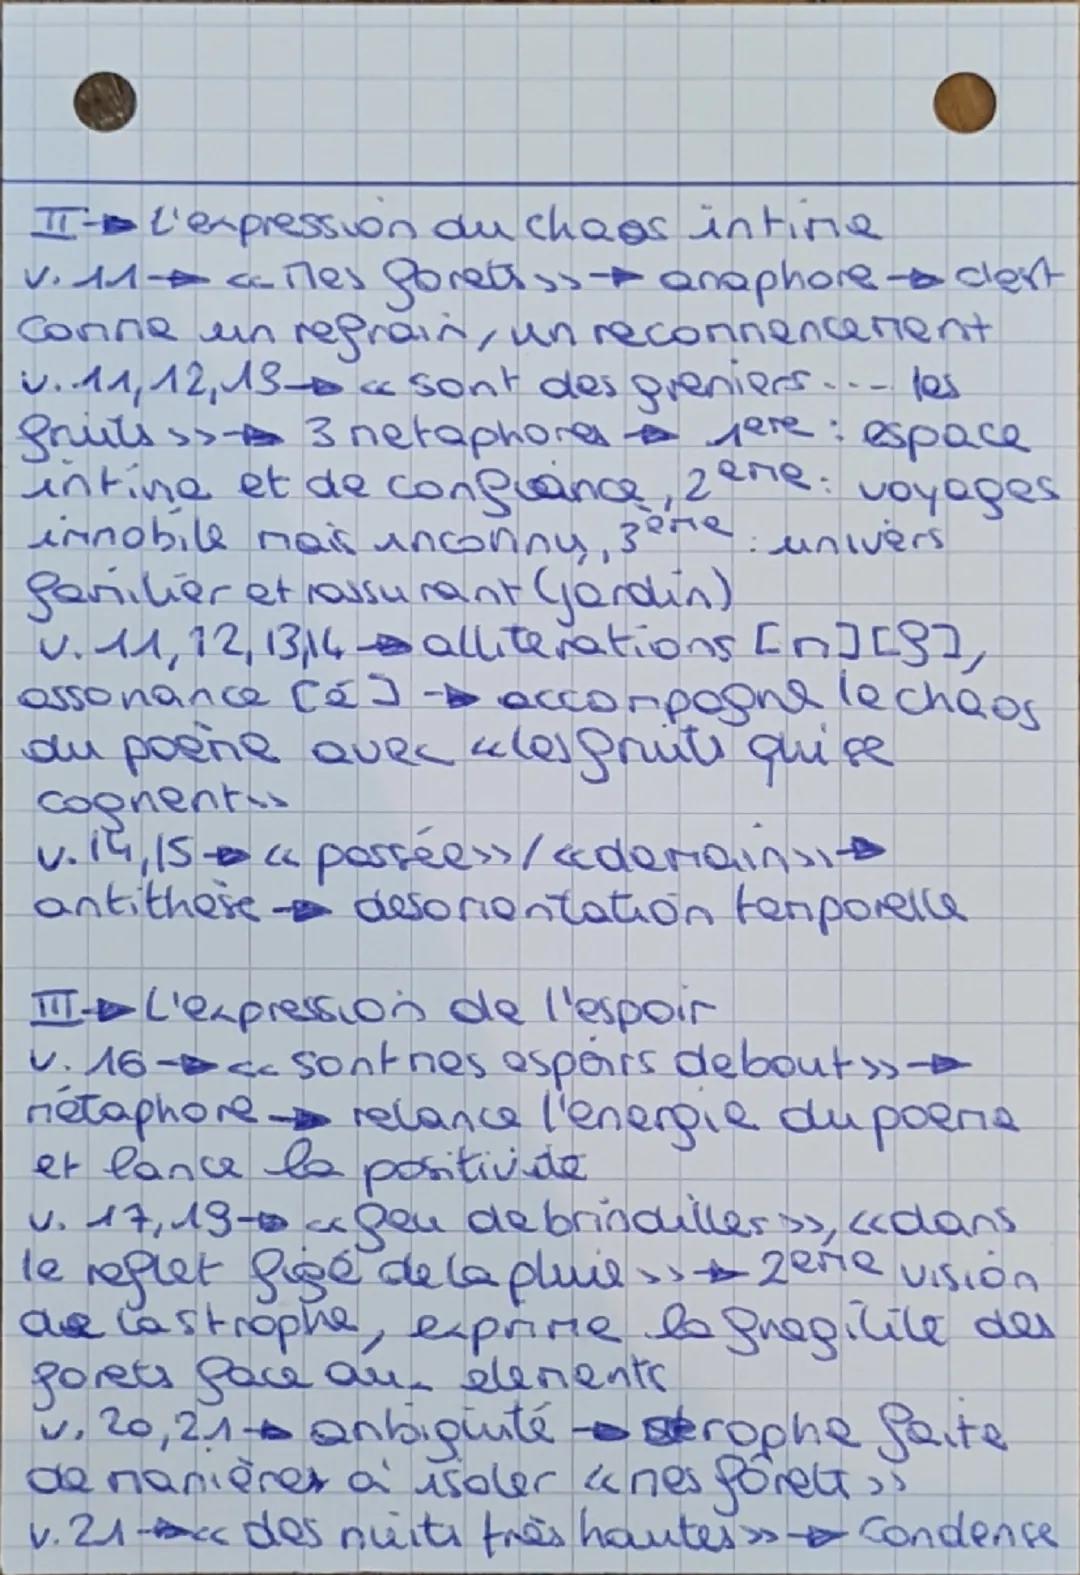 II→ L'expression du chaos intime
v. 11 → «Mes forets» → anaphore → c'est
comme un refrain, un recommencement
v. 11, 12, 13 → « sont des greniers .... les
fruits » → 3 metaphores → 1ere : espace
intime et de confiance, 2eme : voyages
immobile mais inconnu, 3ème : univers
familier et rassurant (jardin)
v. 11, 12, 13,14 → alliterations [n] [f],
assonance [é] → accompagne le chaos
du poème avec «les fruits qui se
cognent»
v. 14,15 → « passée» / «demain» →
antithèse → desorientation temporelle
III→ L'expression de l'espoir
v. 16 → « sont mes espoirs debout» →
métaphore → relance l'énergie du poeme
et lance la positivité
v. 17,19 → « feu de brindilles», «dans
le reflet figé de la pluie » → 2eme vision
de castrophe, exprime la fragilité des
forets face aux elements
v. 20,21 → ambiguité → strophe faite
de manières à isoler « mes forets »
v. 21 → « des nuits très hautes» → Condense